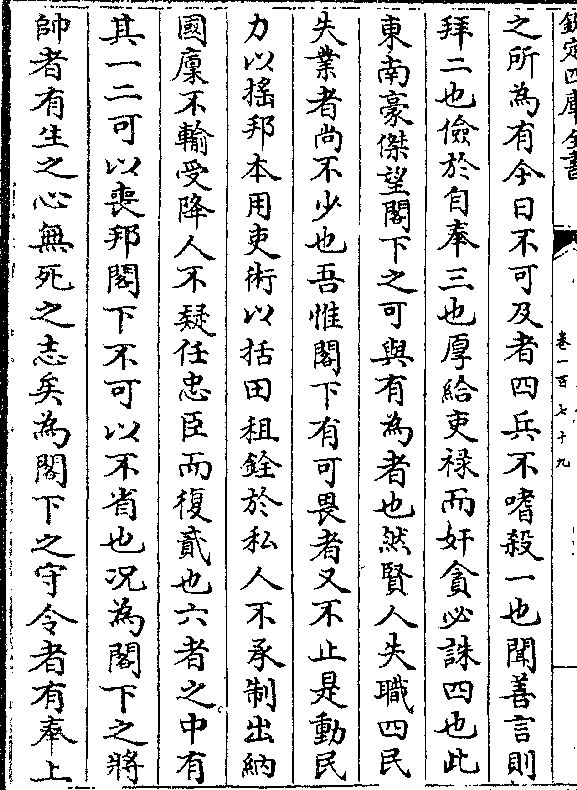 欽定四庫全書
卷一百七十九
之所為有今日不可及者四兵不嗜殺一也聞善言則
拜二也儉於自奉三也厚給吏祿而奸貪必誅四也此
東南豪傑望閣下之可與有為者也然賢人失職四民
失業者尚不少也吾惟閣下有可畏者又不止是動民
力以搖邦本用吏術以括田租銓於私人不承制出納
國廩不輸受降人不疑任忠臣而復貳也六者之中有
其一二可以喪邦閣下不可以不省也况為閣下之將
帥者有生之心無死之志矣為閣下之守令者有奉上